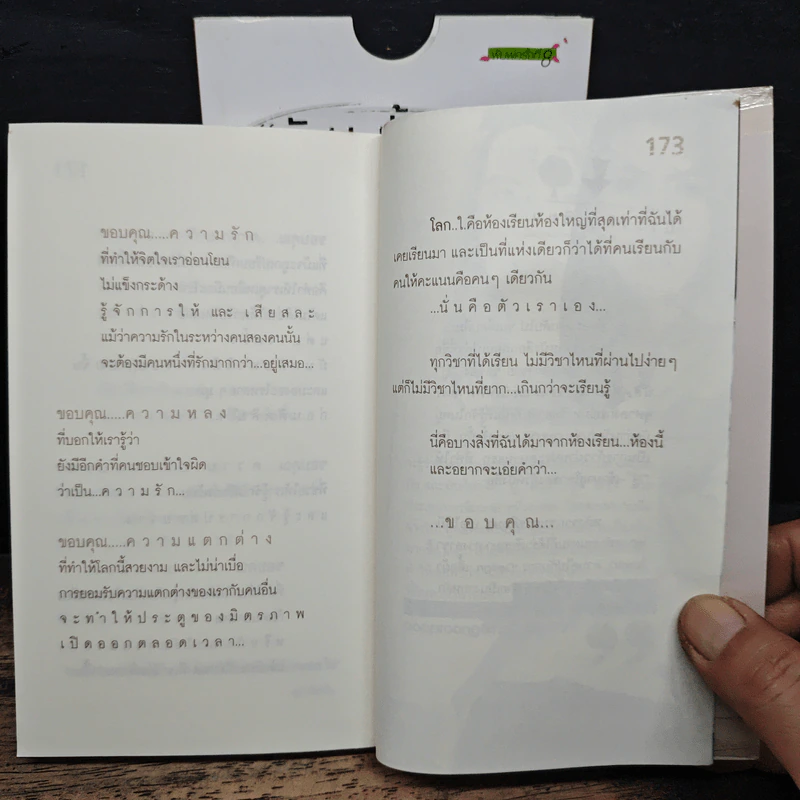 พิมพ์ครั้งที่ 8
ขอบคุณ.....ค ว า ม รั ก
ที่ทำให้จิตใจเราอ่อนโยน
ไม่แข็งกระด้าง
รู้ จั ก ก า ร ใ ห้ และ เ สี ย ส ล ะ
แม้ว่าความรักในระหว่างคนสองคนนั้น
จะต้องมีคนหนึ่งที่รักมากกว่า...อยู่เสมอ...
ขอบคุณ.....ค ว า ม ห ล ง
ที่บอกให้เรารู้ว่า
ยังมีอีกคำที่คนชอบเข้าใจผิด
ว่าเป็น...ค ว า ม รั ก...
ขอบคุณ.....ค ว า ม แ ต ก ต่ า ง
ที่ทำให้โลกนี้สวยงาม และไม่น่าเบื่อ
การยอมรับความแตกต่างของเรากับคนอื่น
จ ะ ทำ ใ ห้ ป ร ะ ตู ข อ ง มิ ต ร ภ า พ
เ ปิ ด อ อ ก ต ล อ ด เ ว ล า...
173
โลก..ใ.คือห้องเรียนห้องใหญ่ที่สุดเท่าที่ฉันได้
เคยเรียนมา และเป็นที่แห่งเดียวก็ว่าได้ที่คนเรียนกับ
คนให้คะแนนคือคนๆ เดียวกัน
...นั่ น คื อ ตั ว เ ร า เ อ ง...
ทุกวิชาที่ได้เรียน ไม่มีวิชาไหนที่ผ่านไปง่ายๆ
แต่ก็ไม่มีวิชาไหนที่ยาก...เกินกว่าจะเรียนรู้
นี่คือบางสิ่งที่ฉันได้มาจากห้องเรียน...ห้องนี้
และอยากจะเอ่ยคำว่า...
...ข อ บ คุ ณ...